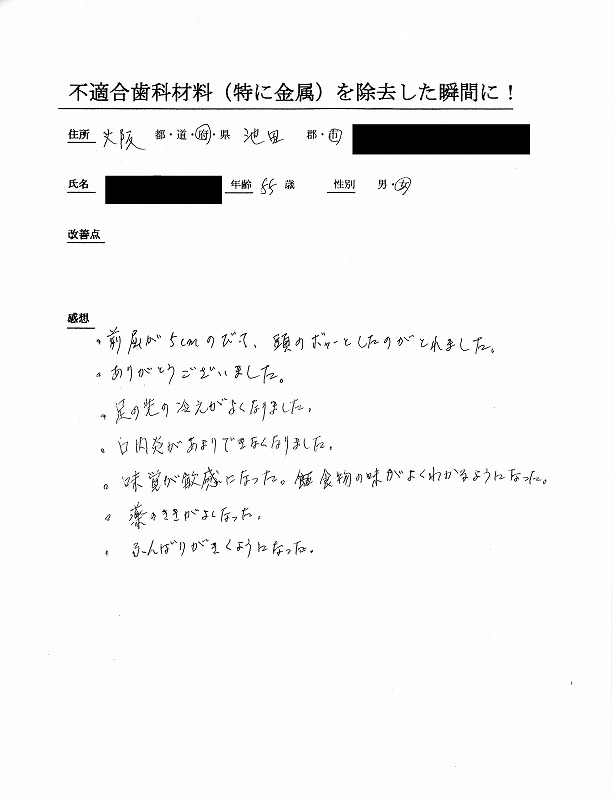 不適合歯科材料（特に金属）を除去した瞬間に！
住所 大阪 都・道・府・県 池田 郡・市
氏名 年齢 55 歳 性別 男・女
改善点
感想
。前屈が5cmのびて、頭のボヤーとしたのがとれました。
。ありがとうございました。
。足の先の冷えがよくなりました。
。口内炎があまりできなくなりました。
。味覚が敏感になった。 食物の味がよくわかるようになった。
。薬のききがよくなった。
。ふんばりがきくようになった。